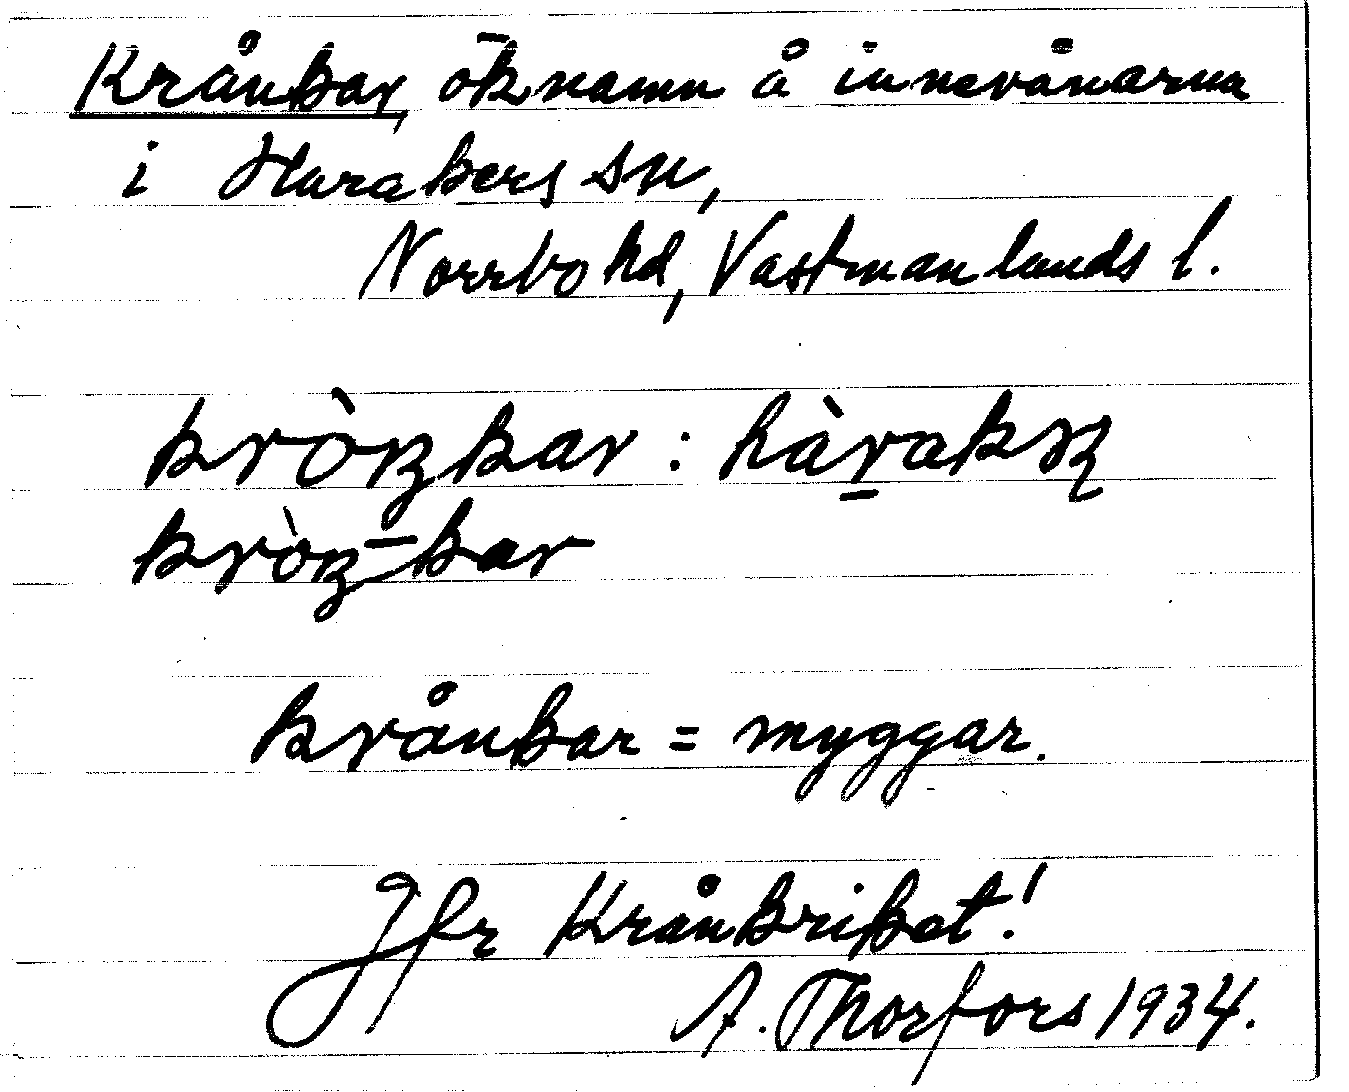 Krånkar, öknamn å innevånarna
i Harakers sn,
Norrbo hd, Västmanlands l.
krånkar = myggar.
Jfr Krånkriket!
A. Thorfors 1934.